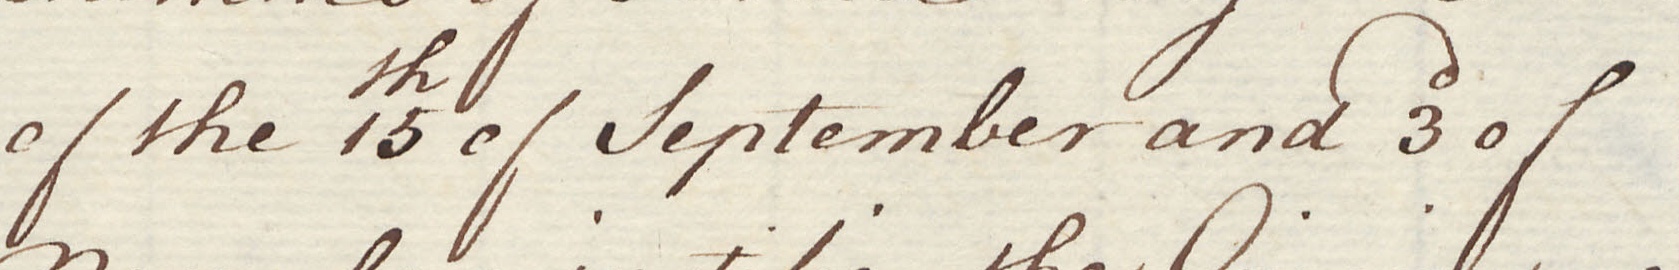 of the 15th of September and 3d of